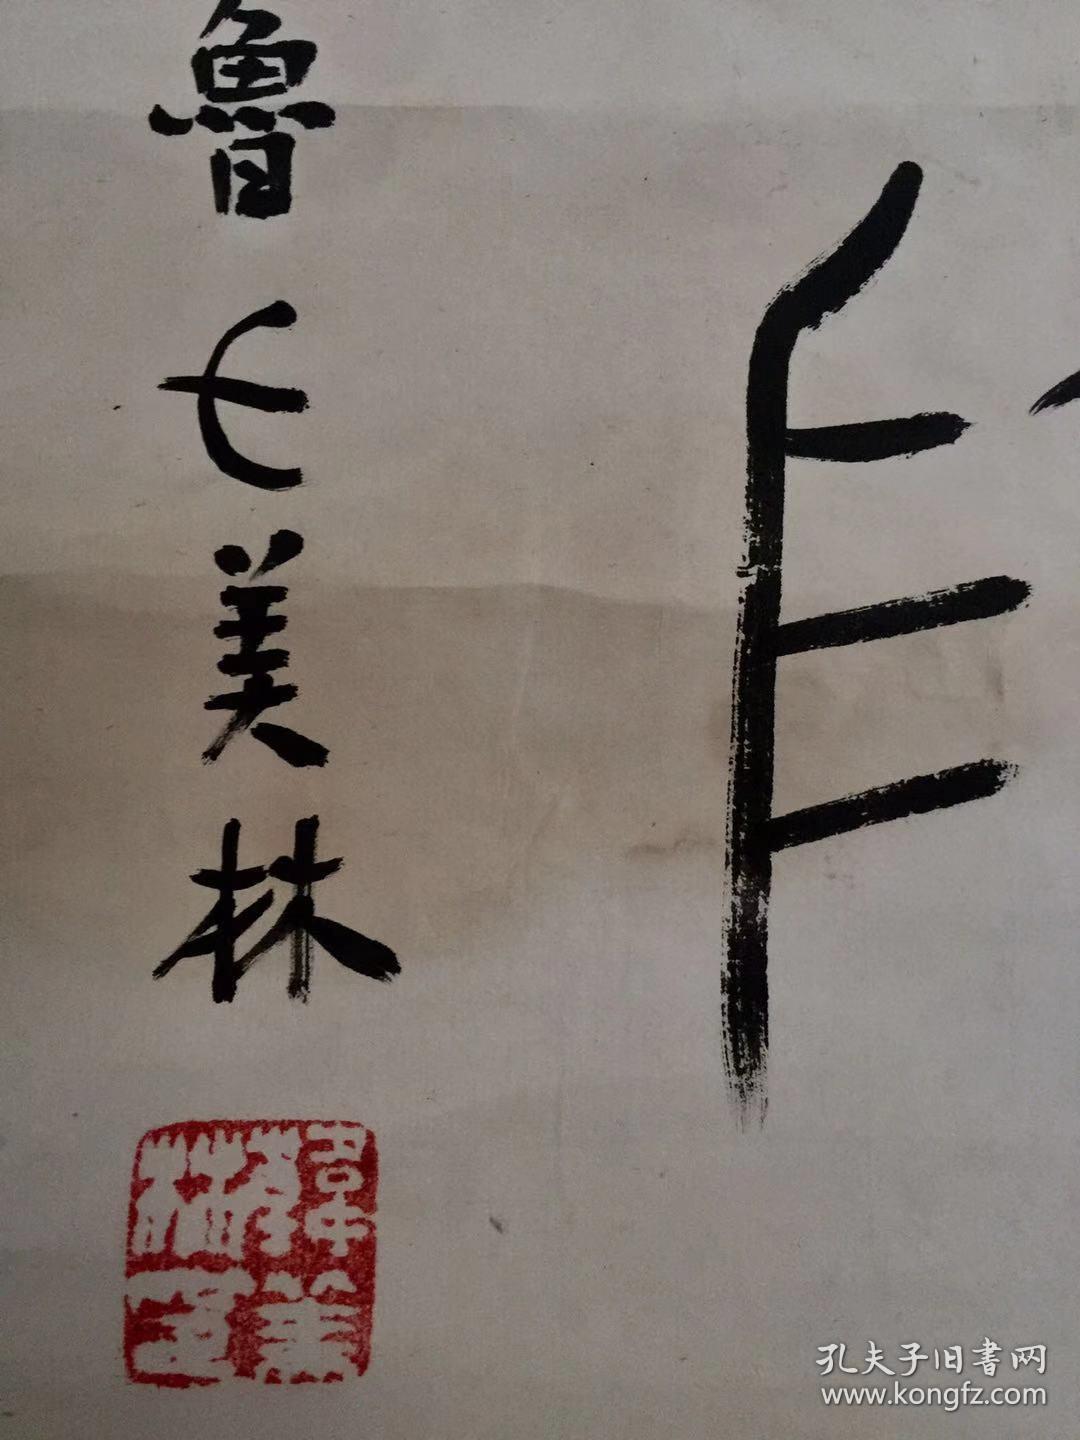 魯美林
韓美
林
孔夫子旧書网
www.kongfz.com